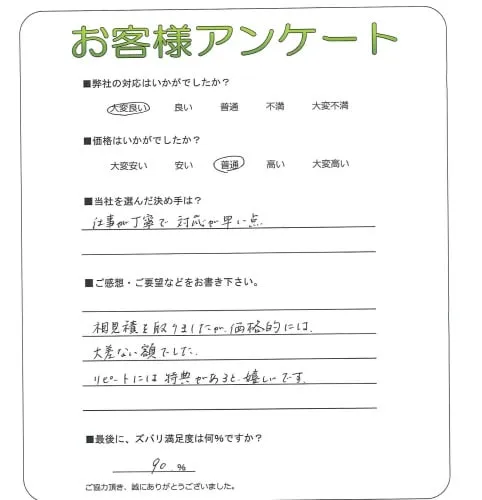 お客様アンケート
■弊社の対応はいかがでしたか？
大変良い 良い 普通 不満 大変不満
■価格はいかがでしたか？
大変安い 安い 普通 高い 大変高い
■当社を選んだ決め手は？
仕事が丁寧で対応が早い点
■ご感想・ご要望などをお書き下さい。
相見積を取りましたが、価格的には、
大差ない額でした。
リピートには特典があると嬉しいです。
■最後に、ズバリ満足度は何%ですか？
90.%
ご協力頂き、誠にありがとうございました。